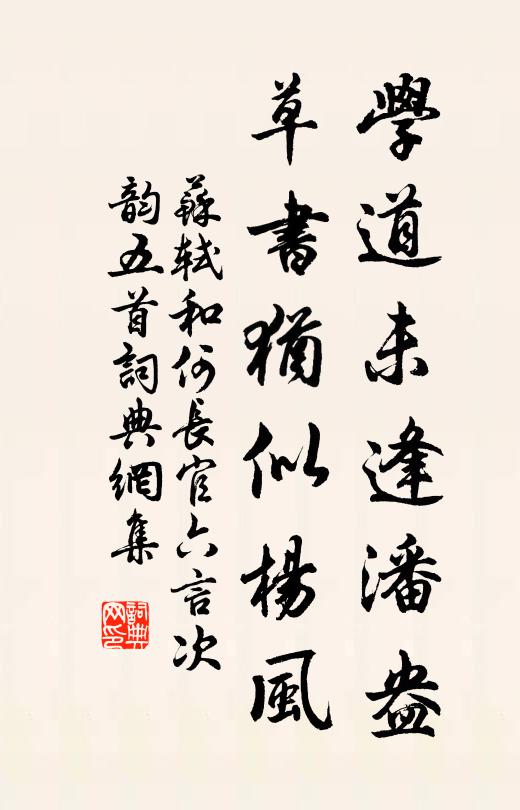 學道未逢潘盎
草書猶似楊風
蘇軾和何長官六言次
韵五首詞典網集
詞典网印